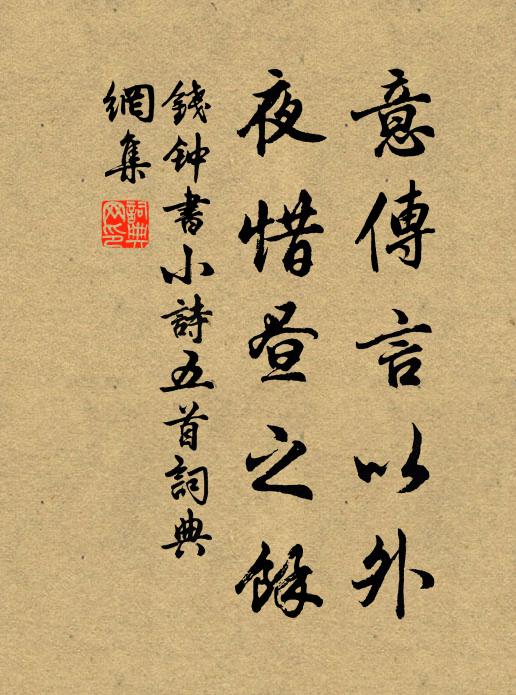 意傳言以外
夜惜昼之餘
錢钟書小詩五首詞典
網集
詞典
网印